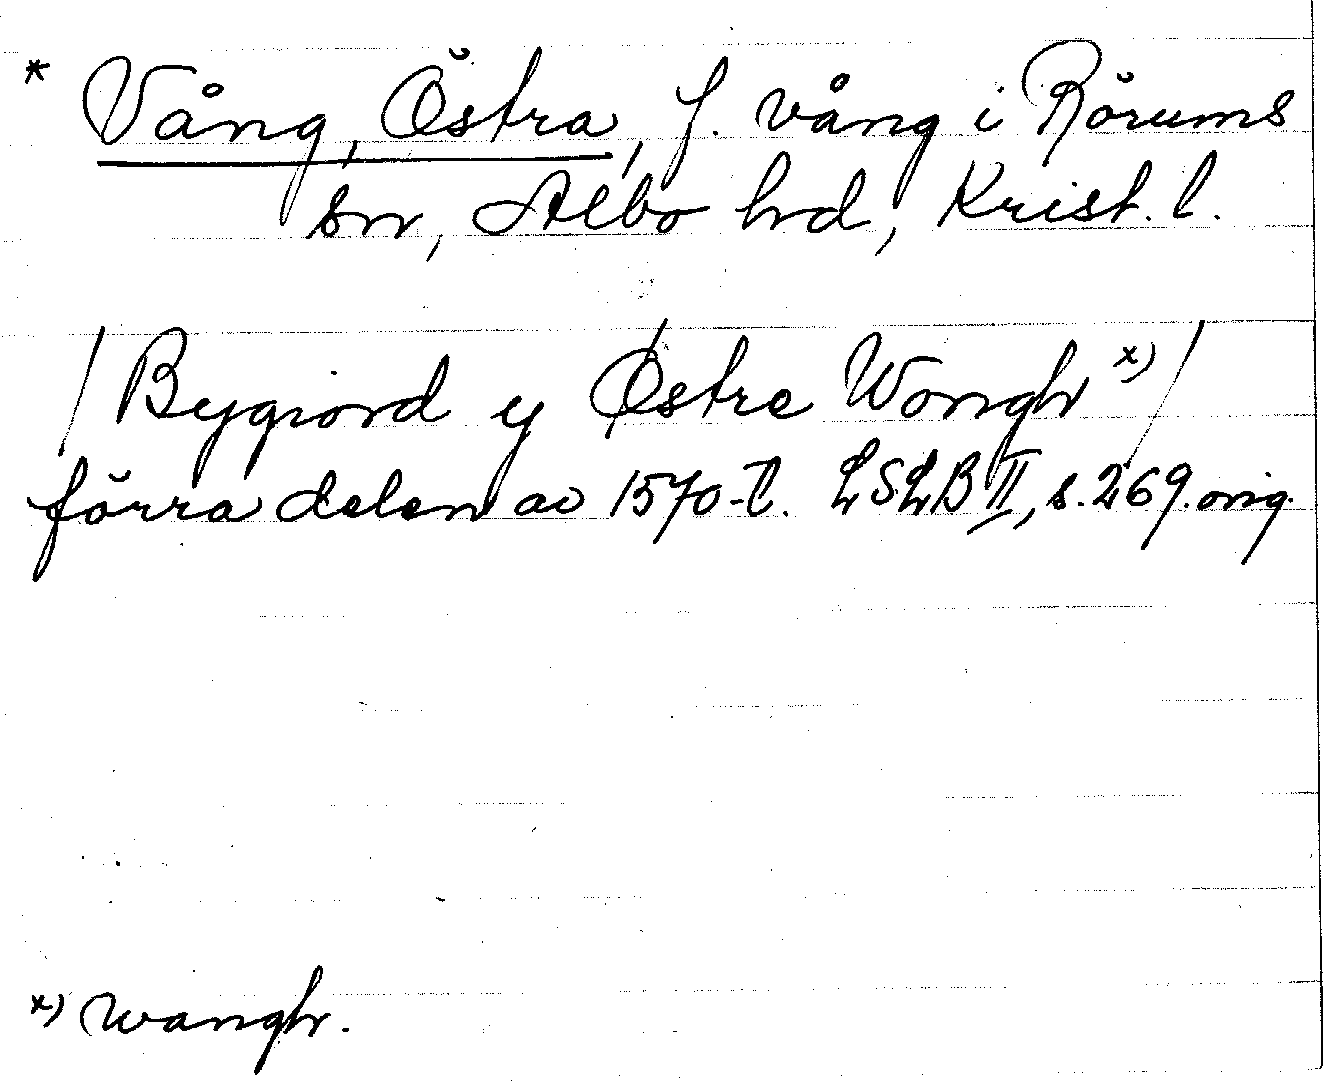 * Vång, Östra, f. vång i Rörums
sn, Albo hrd, Krist. l.
/ Bygiord y Østre Wongh x) /
förra delen av 1570-t. LSLB II, s. 269. orig.
x) Wangh.